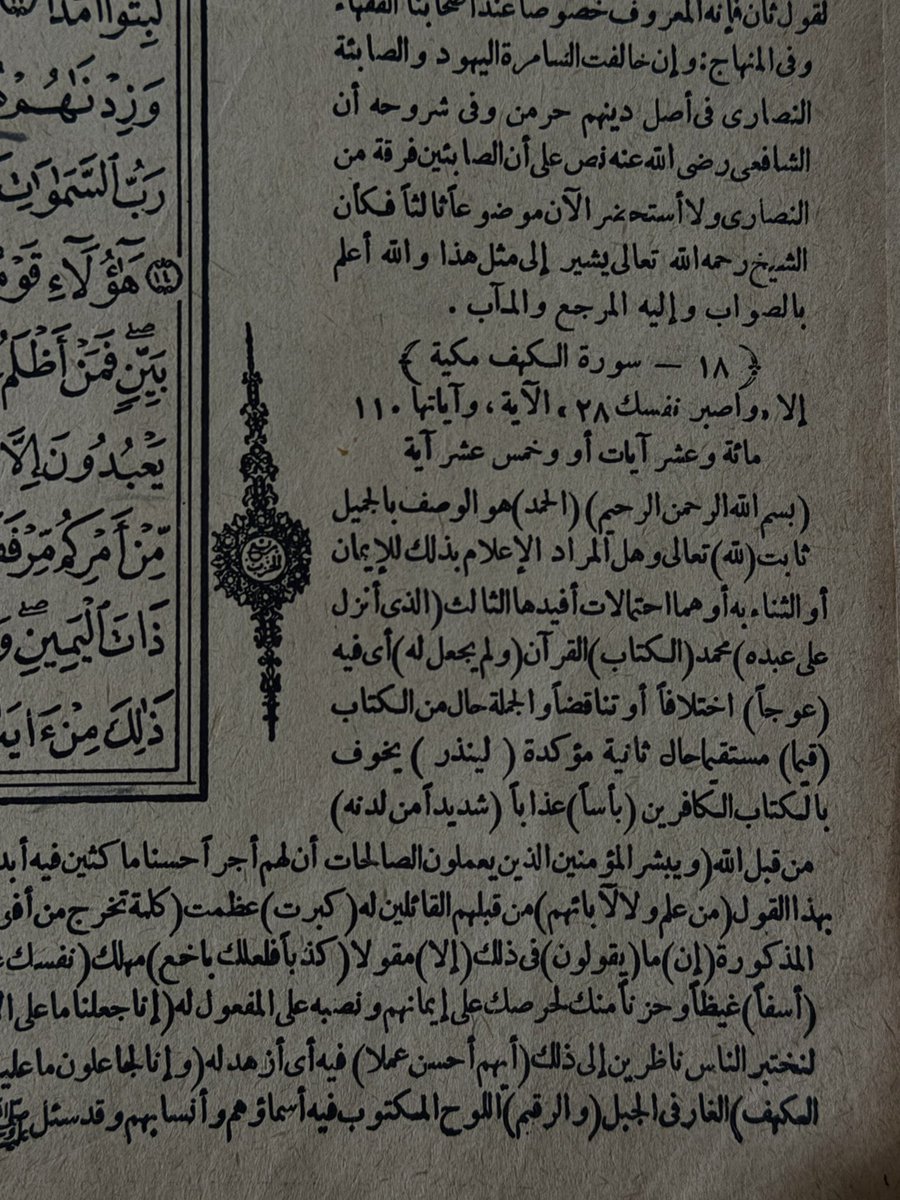 لقول ثان فإنه المعروف خصوصا عند أصحابنا الفقهاء
وفى المنهاج: وإن خالفت السامرة اليهود والصابئة
النصارى فى أصل دينهم حرمن وفى شروحه أن
الشافعى رضى الله عنه نص على أن الصابئين فرقة من
النصارى ولا أستحضر الآن موضوعاً ثالثاً فكأن
الشيخ رحمه الله تعالى يشير إلى مثل هذا والله أعلم
بالصواب وإليه المرجع والمآب .
﴿ ١٨ — سورة الكهف مكية ﴾
إلا «واصبر نفسك ٢٨» الآية ، وآياتها ١١٠
مائة وعشر آيات أو وخمس عشر آية
(بسم الله الرحمن الرحيم) (الحمد) هو الوصف بالجميل
ثابت (لله) تعالى وهل المراد الإعلام بذلك للإيمان
أو الثناء به أو هما احتمالات أفيدها الثالث (الذى أنزل
على عبده) محمد (الكتاب) القرآن (ولم يجعل له) أى فيه
(عوجاً) اختلافاً أو تناقضاً والجملة حال من الكتاب
(قيما) مستقيما حال ثانية مؤكدة ( لينذر ) يخوف
بالكتاب الكافرين (بأساً) عذاباً (شديداً من لدنه)
من قبل الله (ويبشر المؤمنين الذين يعملون الصالحات أن لهم أجراً حسنا ماكثين فيه
بهذا القول (من علم ولا لآبائهم) من قبلهم القائلين له (كبرت) عظمت (كلمة تخرج من
المذكورة (إن) ما (يقولون) فى ذلك (إلا) مقولا (كذباً فلعلك باخع) مهلك (نفسك
(أسفاً) غيظاً وحزناً منك لحرصك على إيمانهم ونصبه على المفعول له (إنا جعلنا ما على
لنختبر الناس ناظرين إلى ذلك (أيهم أحسن عملا) فيه أى أزهد له (وإنا لجاعلون ما
الكهف) الغار فى الجبل (والرقيم) اللوح المكتوب فيه أسماؤهم وأنسابهم وقد سئل
لَبِثُوٓاْ أَمَدٗا
وَزِدۡنَٰهُمۡ
رَبُّ ٱلسَّمَٰوَٰتِ
١٤ هَٰٓؤُلَآءِ
بَيِّنٖۖ فَمَنۡ أَظۡلَمُ
يَعۡبُدُونَ إِلَّا
مِّنۡ أَمۡرِكُم
ذَاتَ ٱلۡيَمِينِۖ
ذَٰلِكَ مِنۡ